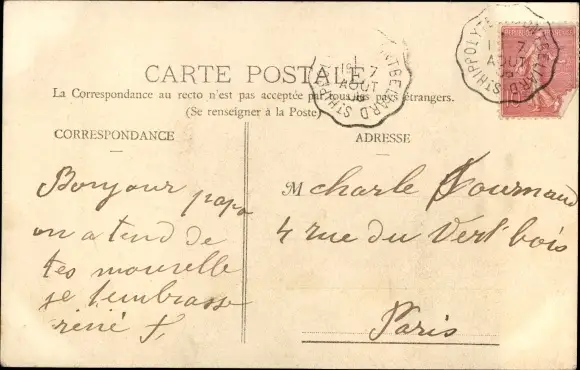 CARTE POSTALE
La Correspondance au recto n'est pas acceptée par tous les pays étrangers.
(Se renseigner à la Poste)
CORRESPONDANCE
ADRESSE
Bonjour papa
on atend de
tes mouvelle
je t'embrasse
réné
M charle Fournaud
4 rue du Vert bois
Paris
7
AOUT
MONTBELIARD
ST HIPPOLYTE
7
AOUT